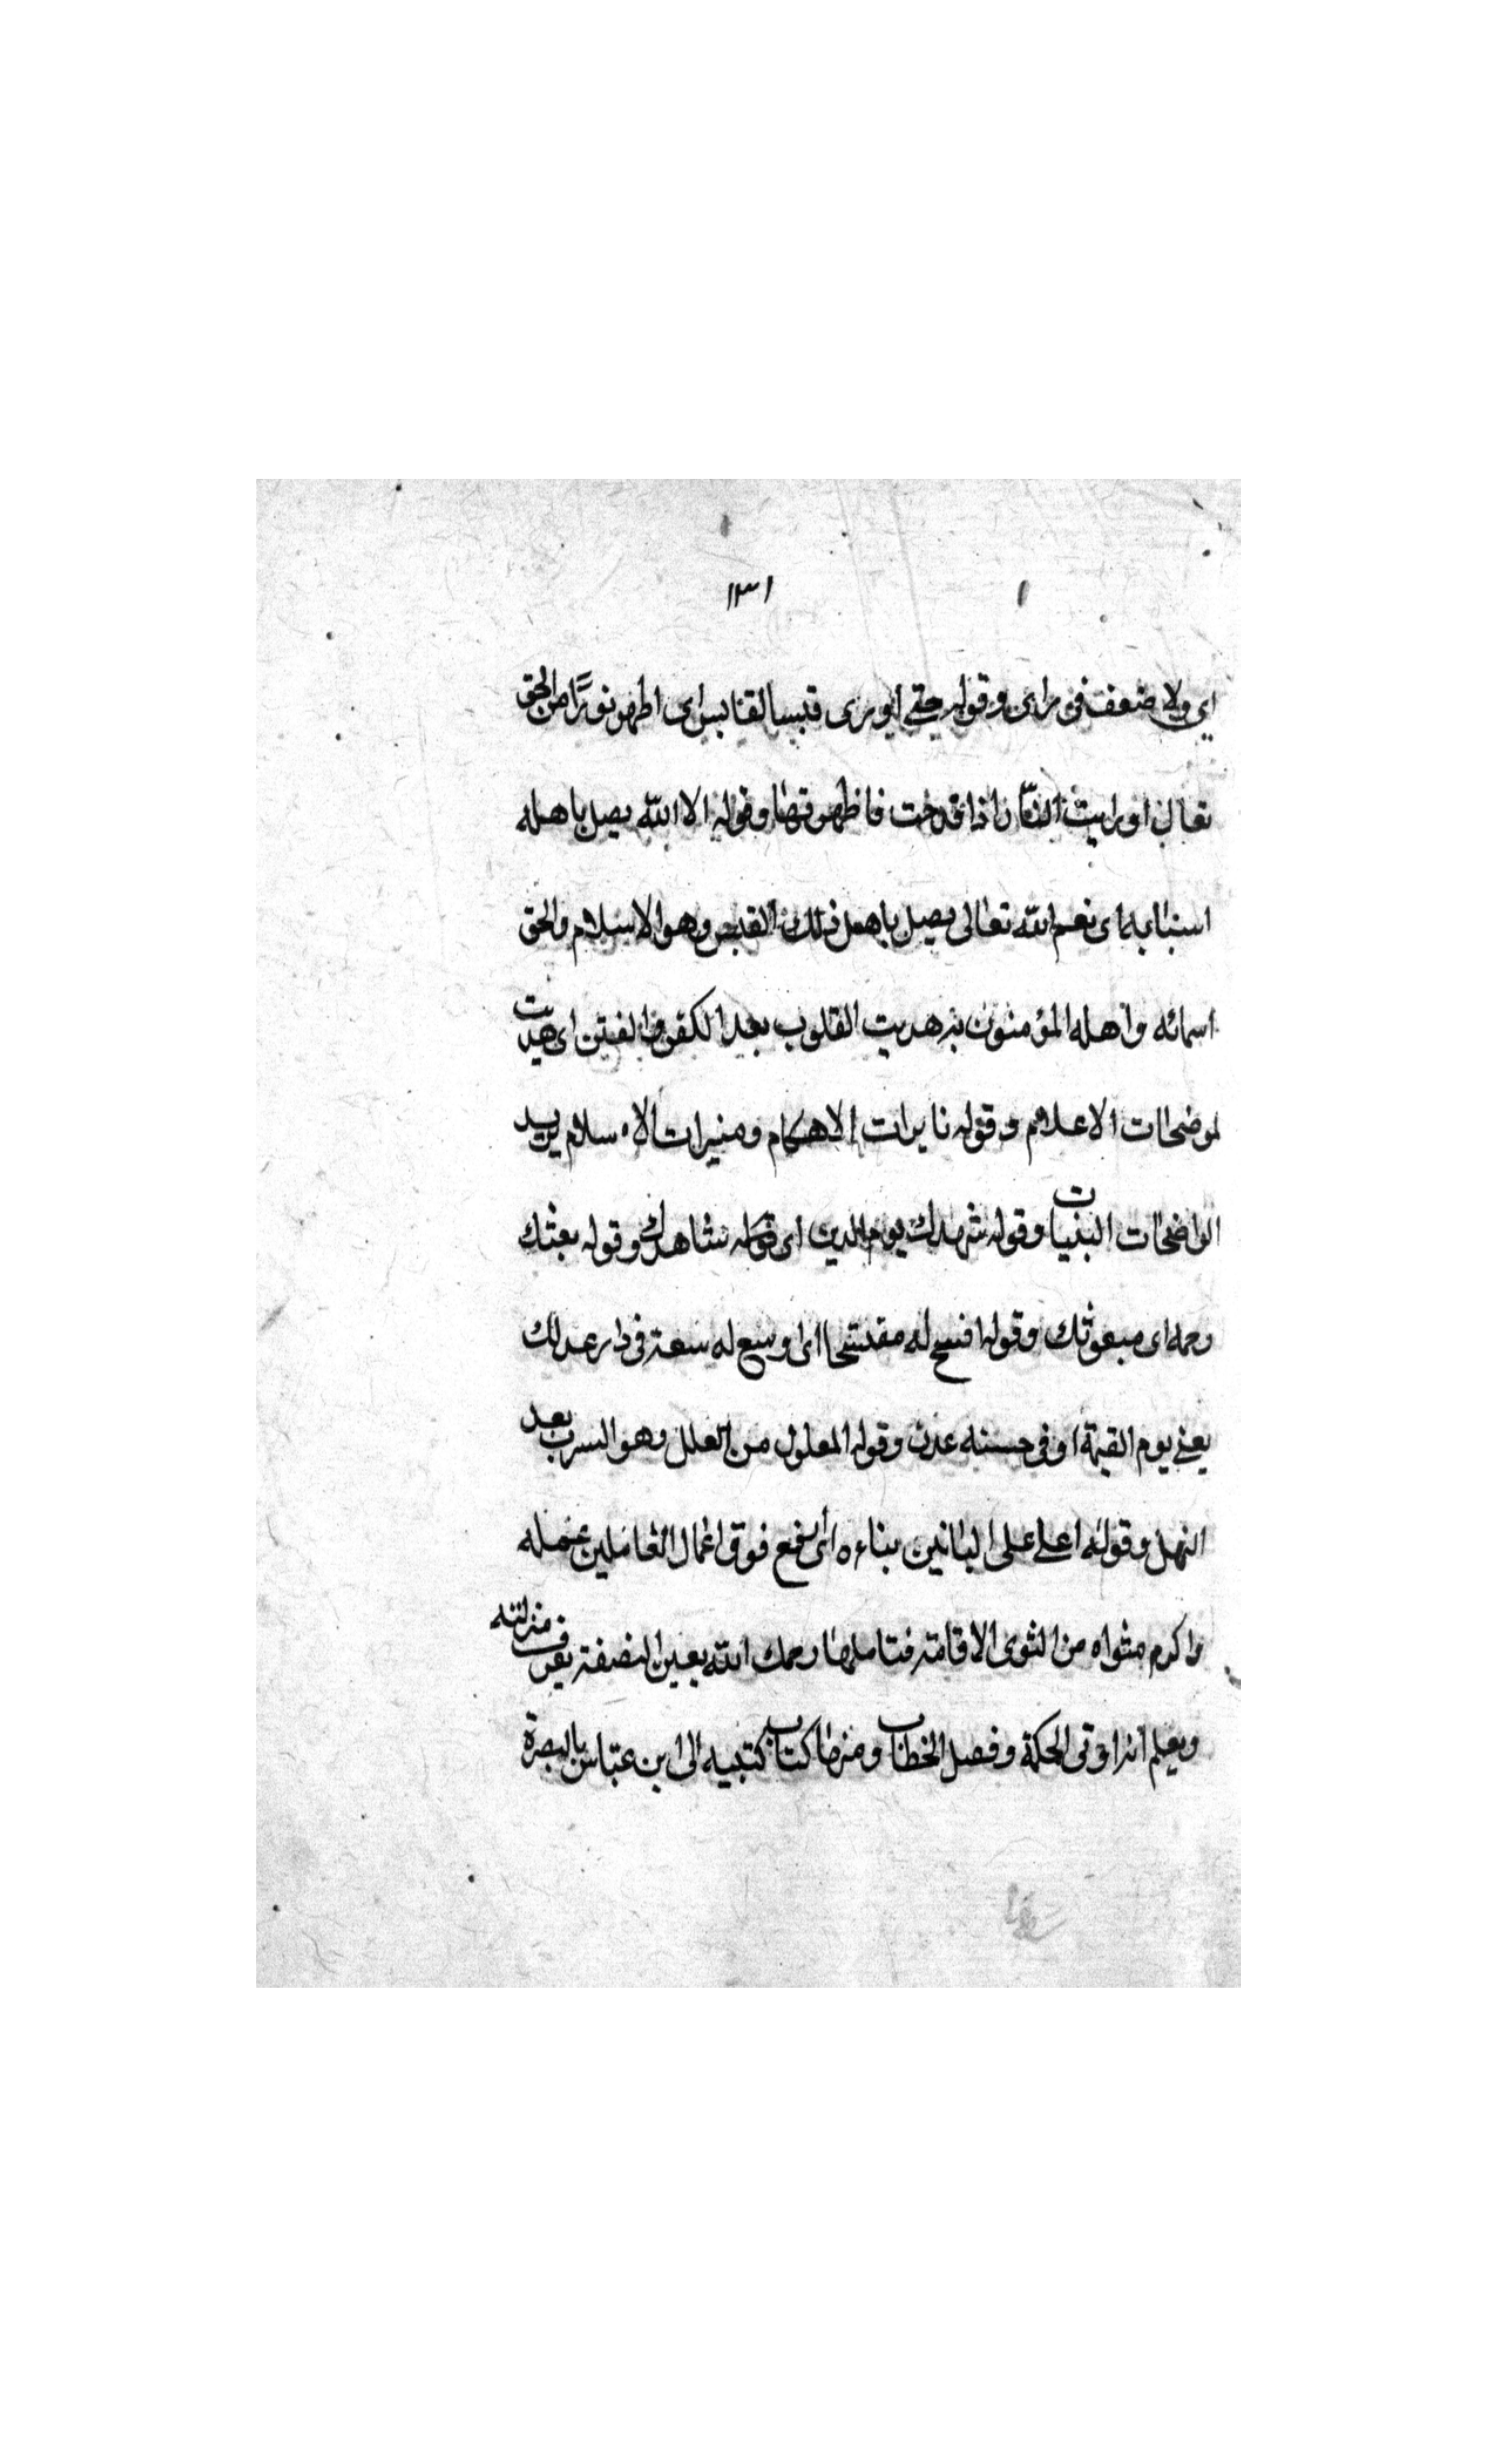 ١٣١
اي ولا ضعف في راى وقوله حتى اورى قبسا لقابس اى اظهر نورًا من الحق
تعالى اوريت النّار اذا قدحت فاظهرتها وقوله الاالله يصل باهله
اسبابه اى نعم الله تعالى يصل باهل ذلك القبس وهو الاسلام والحق
اسبائه واهله المؤمنون به هديت القلوب بعد الكفر والفتن اى هديت
لموضحات الاعلام وقوله نايرات الاحكام ومنيرات الاسلام يريد
الواضحات البنيات وقوله شهيدك يوم الدين اى قوله شاهدك وقوله بعثك
رحمه اى مبعوثك وقوله افسح له مفتسحا اى وسع له سعة في دار عدلك
يعنى يوم القيمة او في جنه عدن وقوله المعلول من العلل وهو الشرب بعد
النهل وقوله اعلى على البانين بناءه اى ارفع فوق اعمال العاملين عمله
واكرم مثواه من الثوى الاقامة فتاملها رحمك الله بعين النصفة تعرف منزلته
ويعلم انه اوتى الحكمة وفصل الخطاب ومنها كتاب كتبه الى ابن عباس بالبصرة